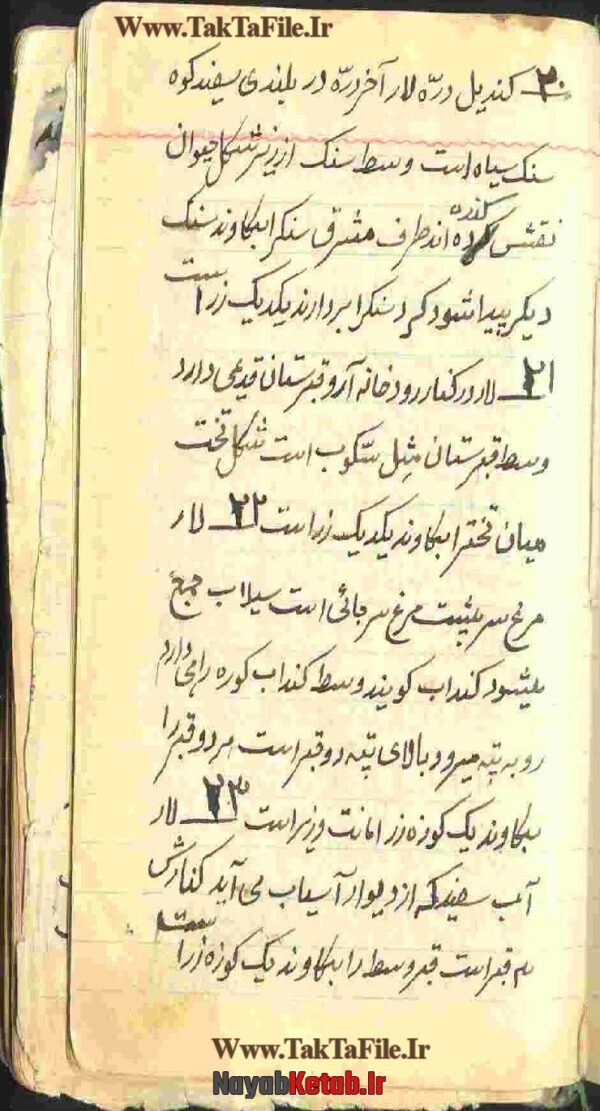 Www.TakTaFile.Ir
۲۰ کندیل درّه لار آخر درّه در بلندی سفید کوه
سنک سیاه است وسط سنک از زیر شکل حیوان
نقش کرده اند طرف مشرق سنکرا بکاوند سنک
دیکر پیدا شود کرد سنکرا بردارند یکدیک زر است
۲۱ لار در کنار رودخانه آرو قبرستان قدیمی دارد
وسط قبرستان مثل سکوب است شکل تخت
میان تختر ابکاوند یکدیک زر است ۲۲ لار
مرغ سر پشت مرغ سر جائی است سیلاب جمع
میشود کنداب کویند وسط کنداب کوره راهی دارد
رو به تپه میرود بالای تپه دو قبر است هر دو قبر را
بکاوند یک کوزه زر امانت وزیر است ۲۳ لار
آب سفید که از دیوار آسیاب می آید کنارش
سه قبر است قبر وسط را بکاوند یک کوزه زر است
Www.TakTaFile.Ir
NayabKetab.Ir